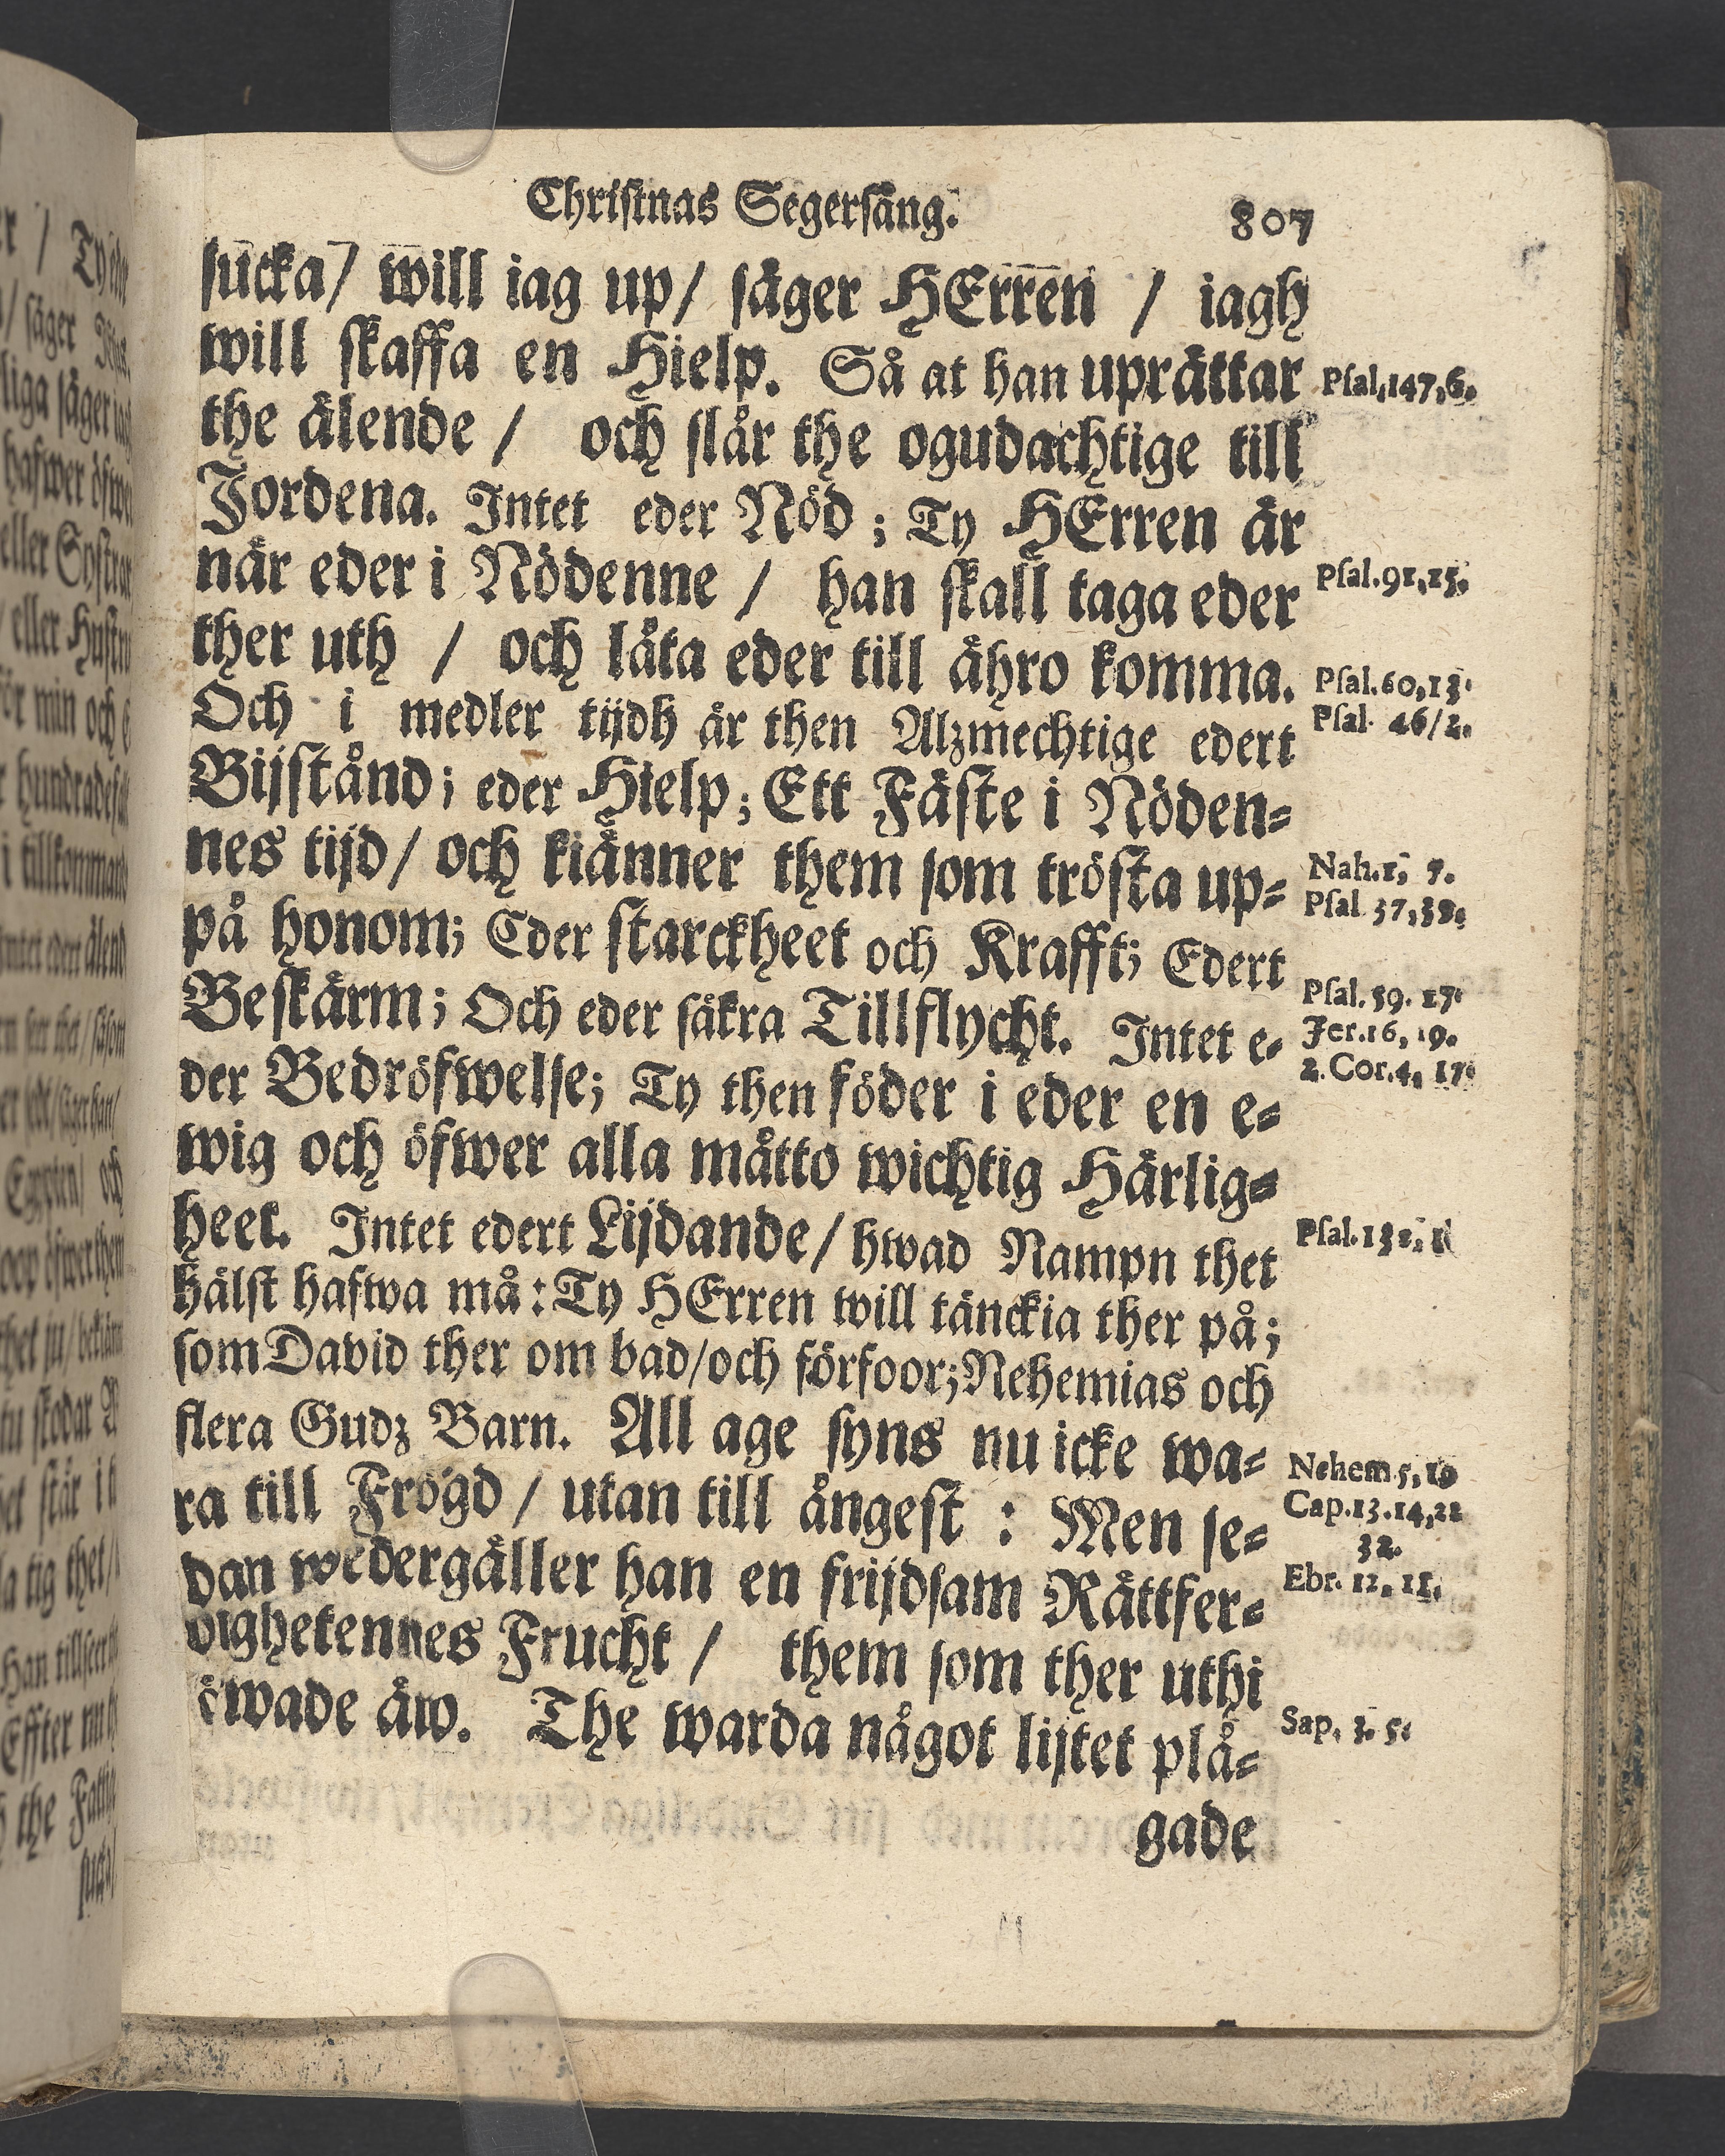 Christnas Segersång. 807
sucka/ will iag up/ säger HErren / iagh
will skaffa en Hielp. Så at han uprättar
Psal,147,6.
the älende / och slår the ogudachtige till
Jordena. Intet eder Nöd ; Ty HErren är
när eder i Nödenne / han skall taga eder
Psal.91,15.
ther uth / och låta eder till ähro komma.
Psal.60,13.
Och i medler tijdh är then Alzmechtige edert
Psal. 46/2.
Bijstånd; eder Hielp; Ett Fäste i Nöden-
nes tijd/ och kiänner them som trösta up-
Nah.1, 7.
på honom; Eder starckheet och Krafft; Edert
Psal 37,39.
Beskärm; Och eder säkra Tillflycht. Intet e-
Psal. 59. 17.
Jer.16, 19.
der Bedröfwelse; Ty then föder i eder en e-
2.Cor.4, 17.
wig och öfwer alla måtto wichtig Härlig-
heet. Intet edert Lijdande/ hwad Nampn thet
Psal.132, 1
hälst hafwa må: Ty HErren will tänckia ther på;
som David ther om bad/och förfoor; Nehemias och
flera Gudz Barn. All age syns nu icke wa-
Nehem 5, 19
ra till Frögd / utan till ångest : Men se-
Cap.13.14,22
32.
dan wedergäller han en frijdsam Rättfer-
Ebr. 12, 11.
dighetennes Frucht / them som ther uthi
öwade äw. The warda något lijtet plå-
Sap, 3. 5.
gade